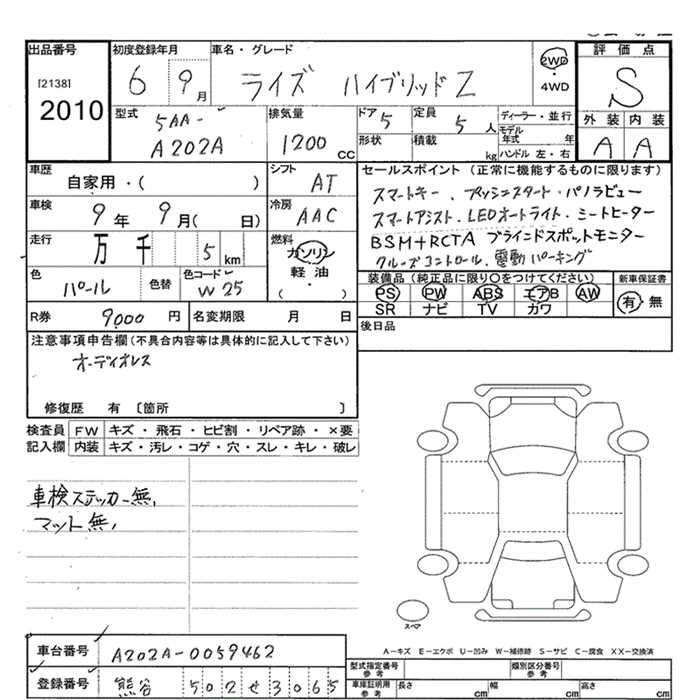 出品番号 初度登録年月 車名・グレード 評価点
[2138] 6 9月 ライズ ハイブリッドZ 2WD ・ 4WD S
2010
型式 5AA- A202A 排気量 1200 CC ドア 5 定員 5人 ディーラー・並行 外装 内装
形状 積載 kg モデル年式 年 A A
ハンドル 左・右
車歴 自家用・( ) シフト AT セールスポイント (正常に機能するものに限ります)
車検 9年 9月( 日) 冷房 AAC スマートキー・プッシュスタート・パノラビュー
スマートアシスト・LEDオートライト・シートヒーター
走行 万 千 5 km 燃料 ガソリン BSM+RCTA ブラインドスポットモニター
軽油 クルーズコントロール・電動パーキング
色 パール 色替 色コード W25 ( ・ ) 装備品(純正品に限り〇をつけてください) 新車保証書
PS PW ABS エアB AW 有・無
R券 9000 円 名変期限 月 日 SR ナビ TV カワ
注意事項申告欄(不具合内容等は具体的に記入して下さい) 後日品
オーディオレス
修復歴 有 〔箇所 〕
検査員 FW キズ・飛石・ヒビ割・リペア跡・×要
記入欄 内装 キズ・汚レ・コゲ・穴・スレ・キレ・破レ
車検ステッカー無,
マット無,
スペア
A-キズ E-エクボ U-凹み W-補修跡 S-サビ C-腐食 XX-交換済
車台番号 A202A-0059462 型式指定番号 参考 類別区分番号 参考
登録番号 熊谷 502せ3065 車庫証明用 参考 長さ cm 幅 cm 高さ cm